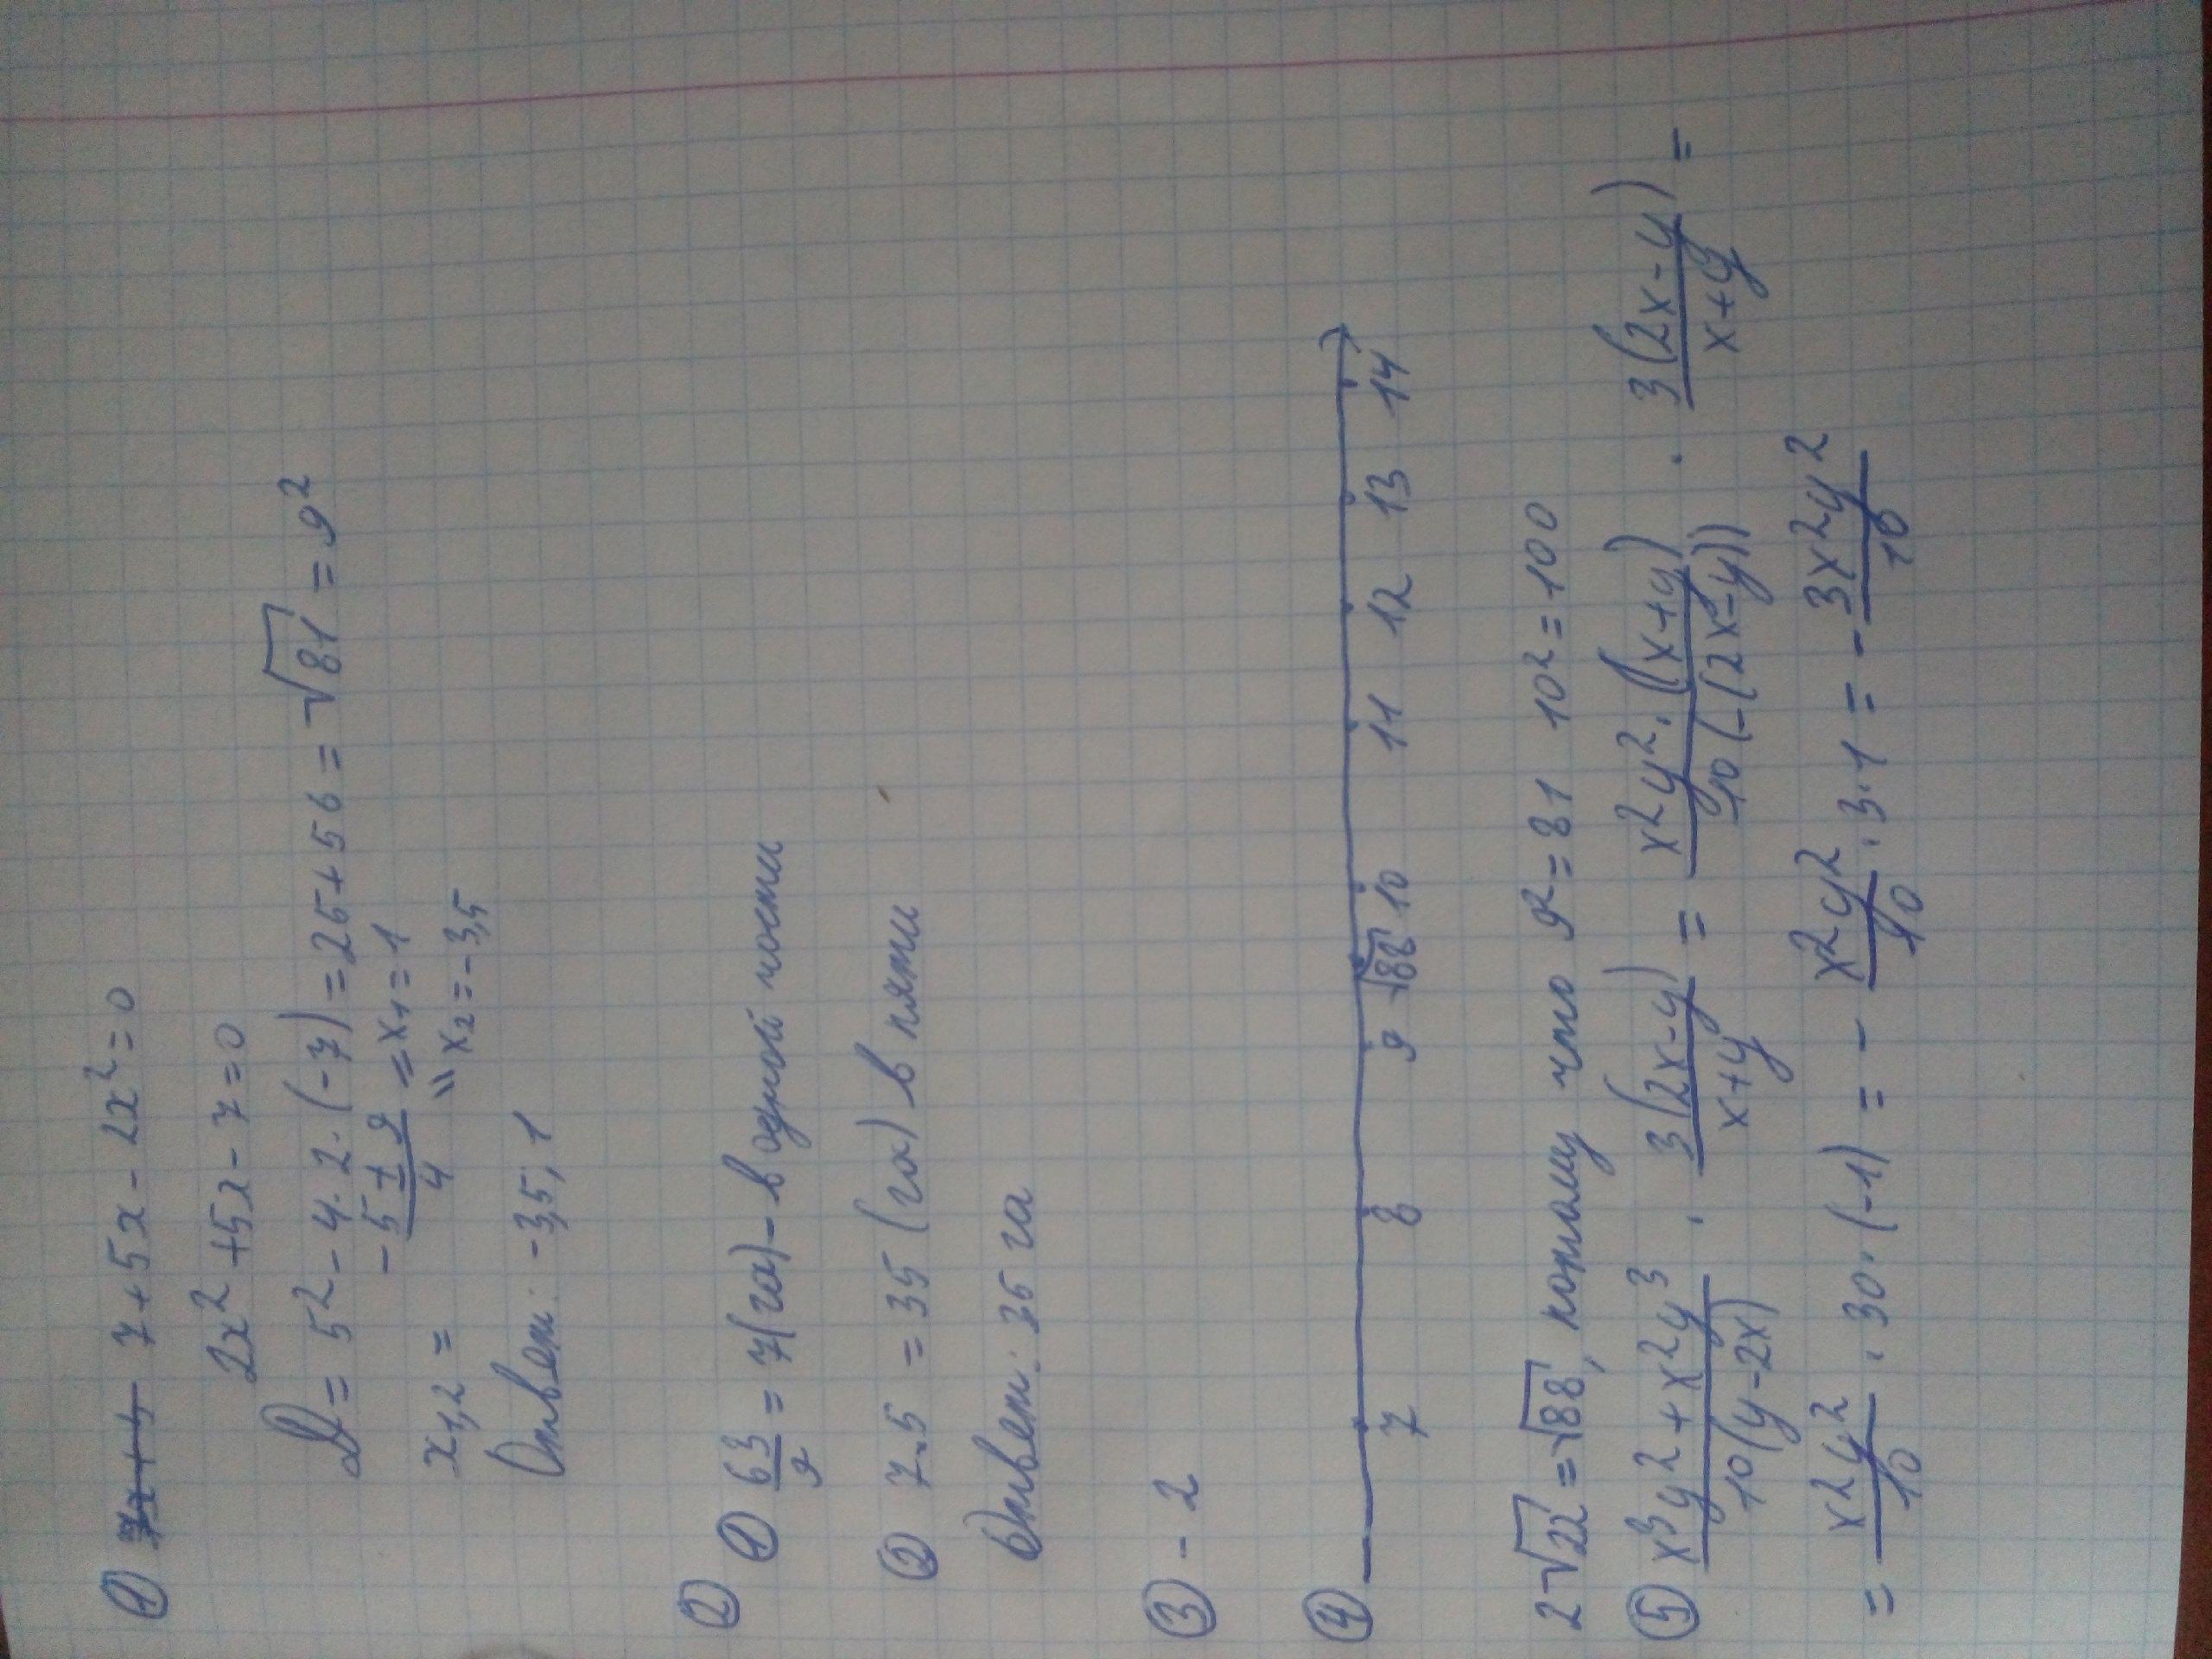 ① 7x+5 7+5x-2x²=0
2x²+5x-7=0
D=5²-4·2·(-7)=25+56=√81=9²
x₁,₂= (-5±9)/4 = x₁=1
" x₂=-3,5
Ответ: -3,5; 1
②
① 63/9=7(га)-в одной части
② 7·5=35(га) в пяти
Ответ: 35 га
③ -2
④
7 8 9 √88 10 11 12 13 14
2√22=√88, потому что 9²=81 10²=100
⑤ (x³y²+x²y³)/(10(y-2x)) · (3(2x-y))/(x+y) = (x²y²·(x+y))/(10(-(2x-y))) · (3(2x-y))/(x+y) =
= x²y²/10 · 30·(-1) = - x²y²/10 · 3·1 = - 3x²y²/10